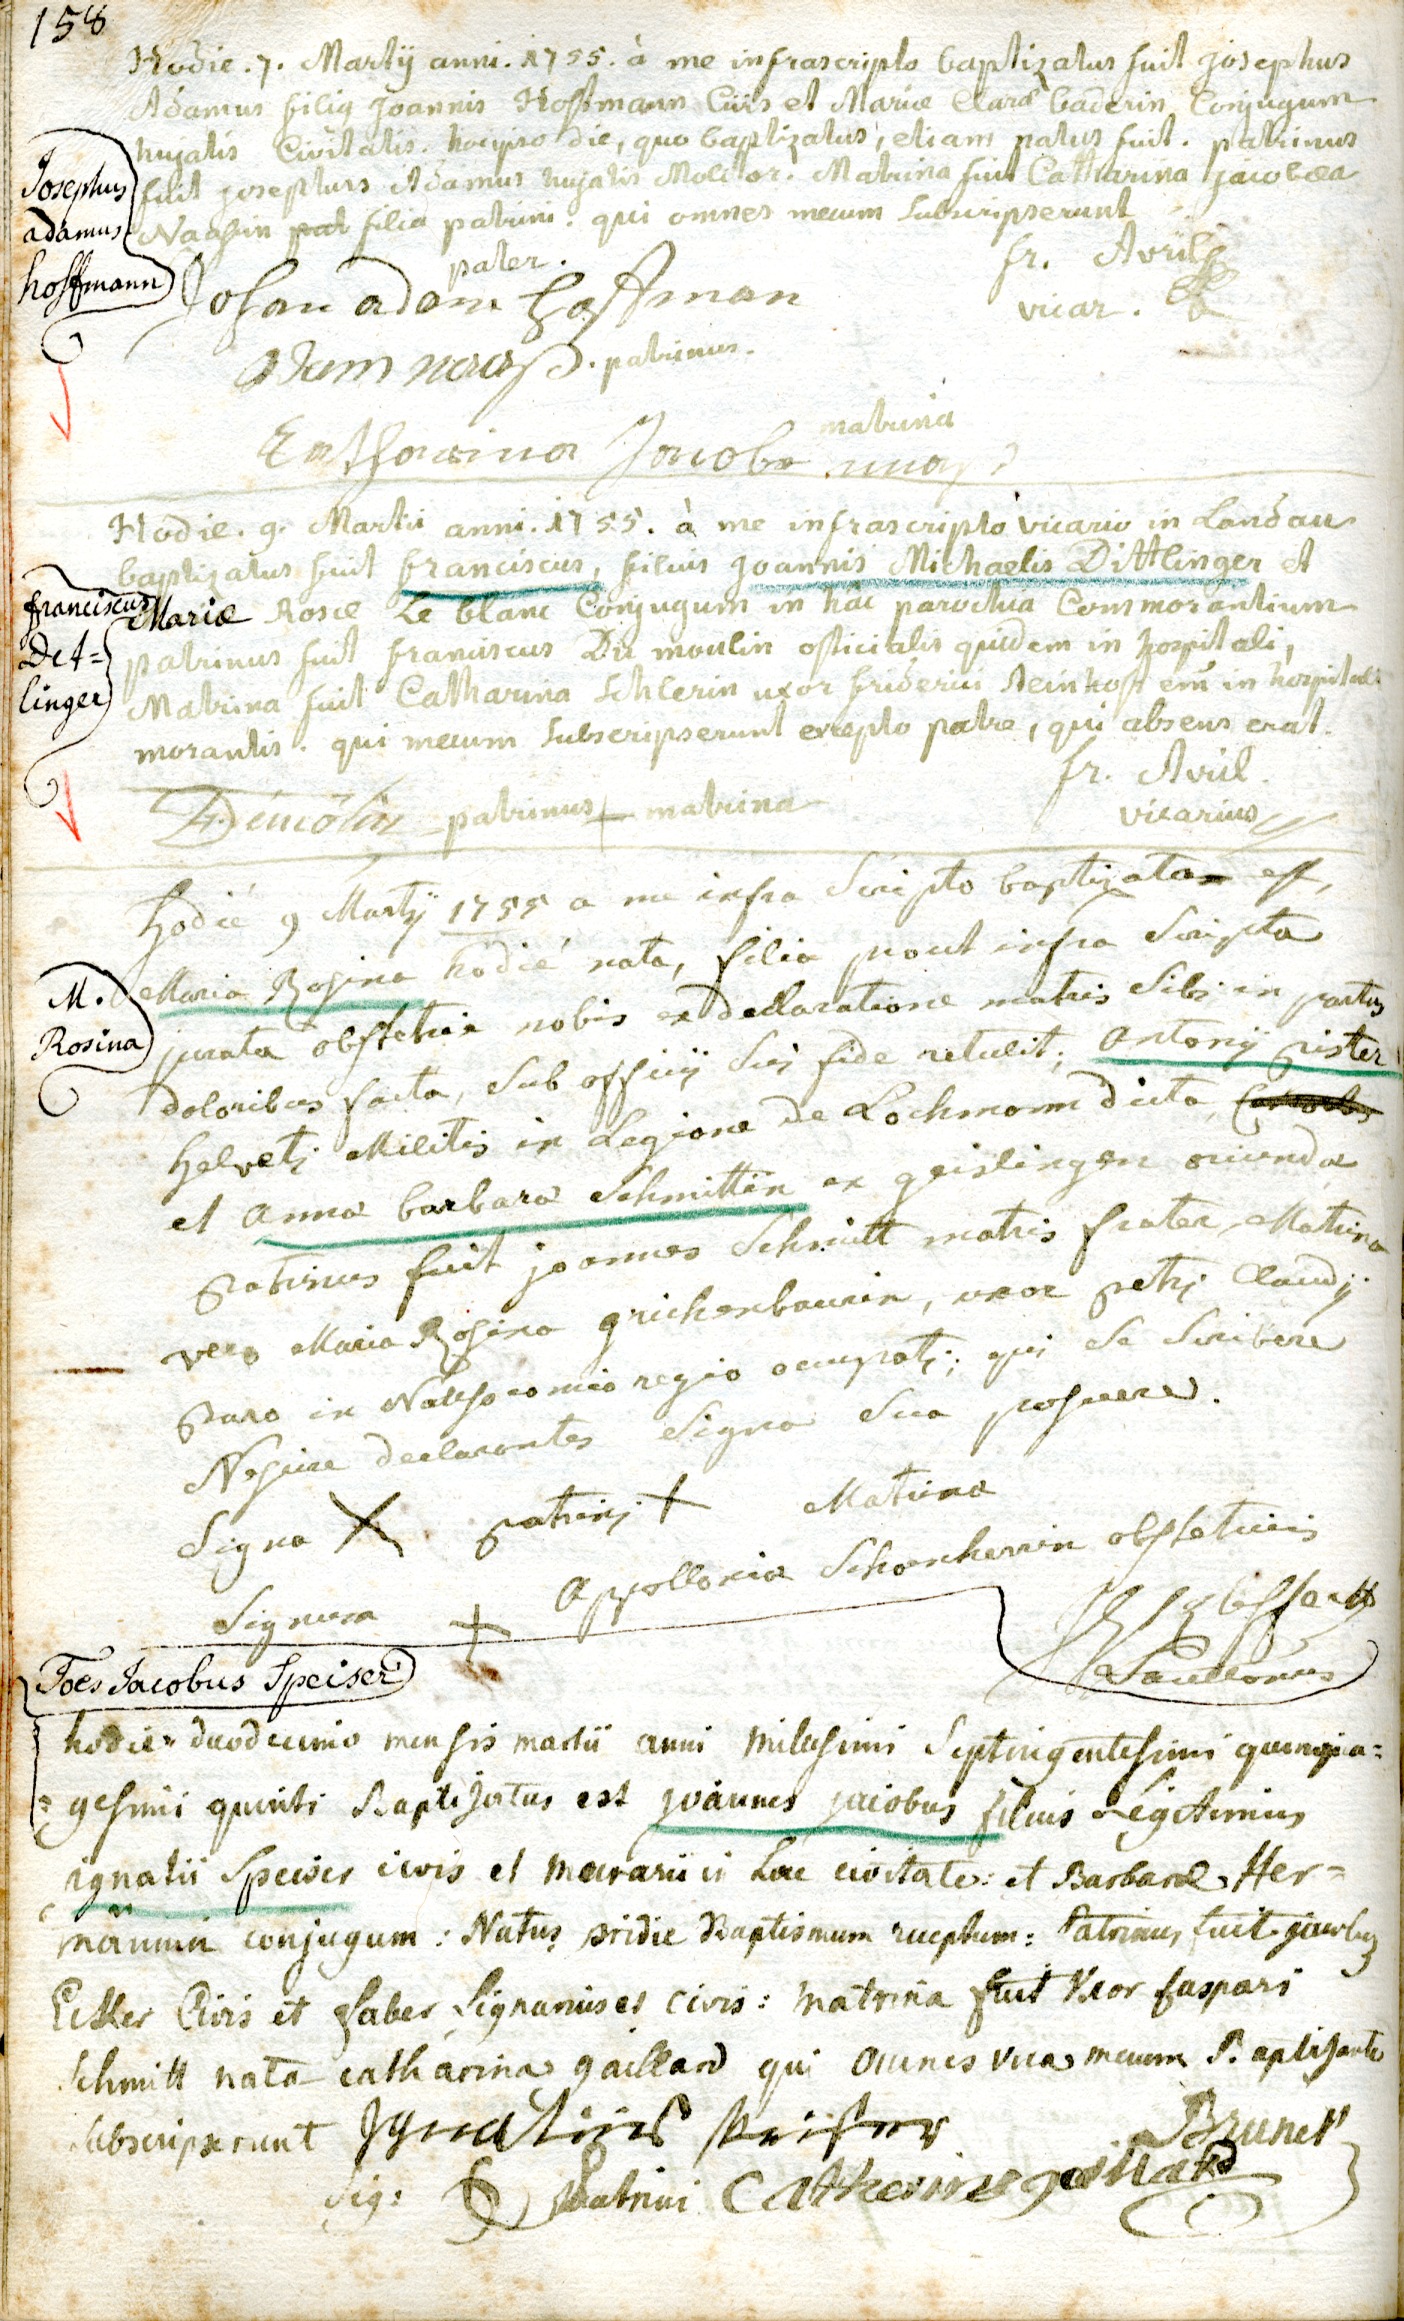 158
Hodie. 7. Martij anni. 1755. à me infrascripto baptizatus fuit josephus
Adamus filiq joannis Hoffmann Civis et Mariæ Claræ baderin Conjugum
hujatis Civitatis. hocipso die, quo baptizatus, etiam natus fuit. patrinus
fuit josephus Adamus hujatis Molitor. Matrina fuit Catharina jacobæa
Naasin filia patrini. qui omnes mecum subscripserunt
Josephus
adamus
hoffmann
pater.
fr. Avril
Johan adam hoffman
vicar.
Adam naas. patrinus.
matrina
Catharina Jacobe
Hodie. 9. Martii anni. 1755. à me infrascripto vicario in Landau
baptizatus fuit franciscus, filius joannis Michaelis Dittlinger et
Mariæ Rosæ Le blanc Conjugum in hâc parochia Commorantium
patrinus fuit franciscus Du moulin officialis quidem in hospitali,
Matrina fuit Catharina Schlerin uxor friderici Steinhoff em in hospitali
morantis. qui mecum subscripserunt excepto patre, qui absens erat.
franciscus
Det=
linger
fr. Avril.
patrinus + matrina
vicarius
hodié 9 Martij 1755 a me infra Scripto baptizata est,
Maria Rosina hodié nata, filia prout infra Scripta
jurata obstetrix nobis ex declaratione matris Sibi in partus
doloribus facta, Sub officij Sui fide retulit; Antonij pister
helvetj Militis in Legione de Lochmann dicta
et Anna barbara Schmittin ex geislingen oriunda
patrinus fuit joannes Schmitt matris frater, Matrina
vero Maria Rosina grichenbaurin, uxor petrj Claudj
puro in Nalesocomio regio occupatj; qui Se Scribere
Nescire declarantes Signa Sua posuere.
M.
Rosina
Signa X patrinj + Matrina
Signum + Apollonia Schonherrin obstetricis
Joes Jacobus Speiser
hodie duodecimo mensis martii anni millesimi Septingentesimi quinqua=
=gesimi quinti Baptizatus est joannes jacobus filius Legitimus
ignatii Speiser civis et murarii in hac civitate: et Barbaræ Her=
mannin conjugum: Natus pridie Baptismum receptum: Patrinus fuit jacobus
Ecker Civis et faber Lignarius et civis: Matrina fuit Uxor Caspari
Schmitt nata catharina gaillard qui omnes una mecum Baptizante
subscripserunt Ignatius Speiser Brunet
Sig: patrini Catherine gaillard